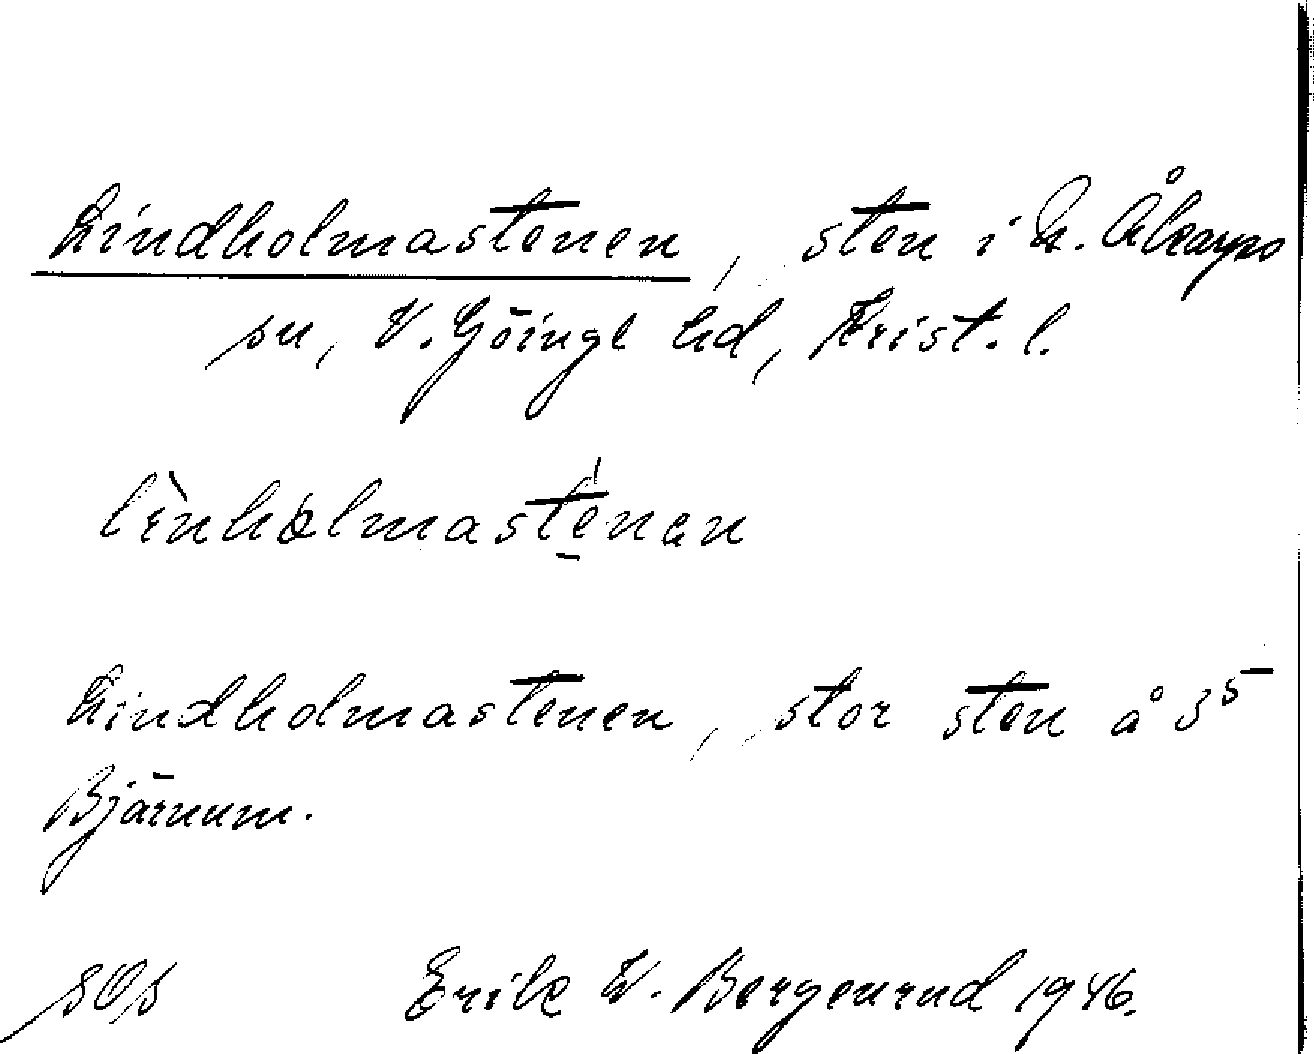 Lindholmastenen, sten i N. Åkarps
sn, V. Göinge hd, Krist. l.
lìnhòlmasténan
Lindholmastenen, stor sten å 3⁵
Bjärnum.
Erik W. Bergenrud 1946.